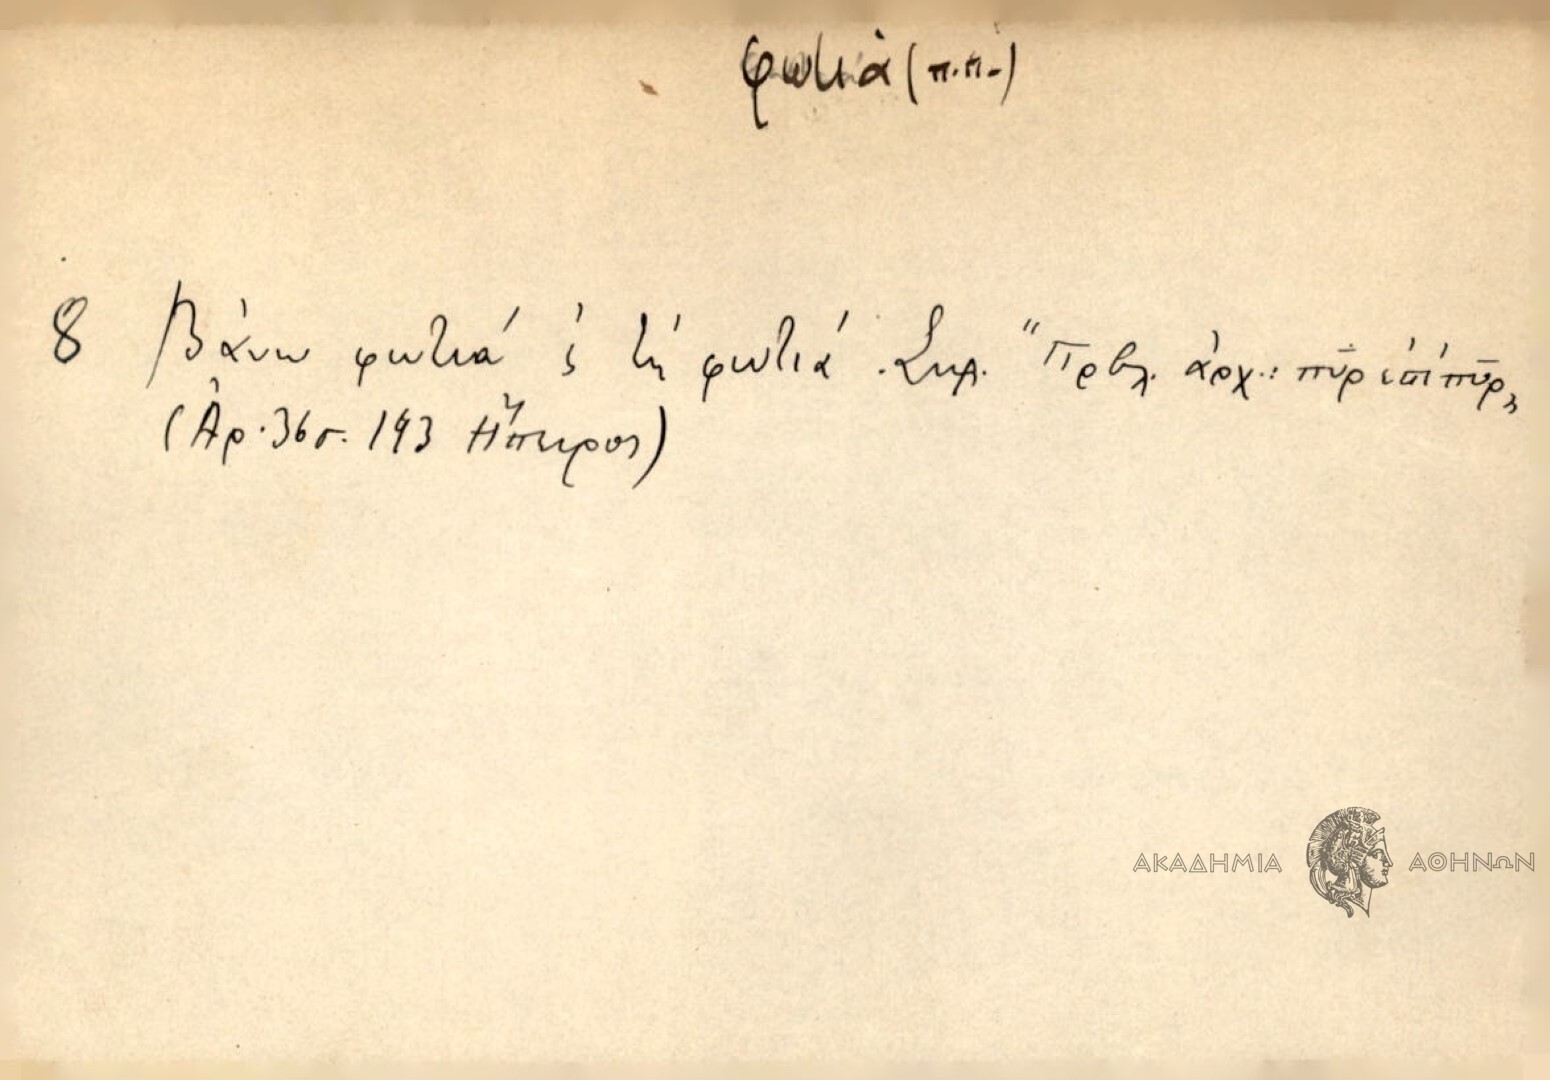 φωτιὰ (π.π.)
8 Βάνω φωτιά ς τή φωτιά. Σημ. "Πρβλ. ἀρχ.: πῦρ ἐπί πῦρ„
(Ἀρ. 36 σ. 193 Ἤπειρος)
ΑΚΑΔΗΜΙΑ ΑΘΗΝΩΝ